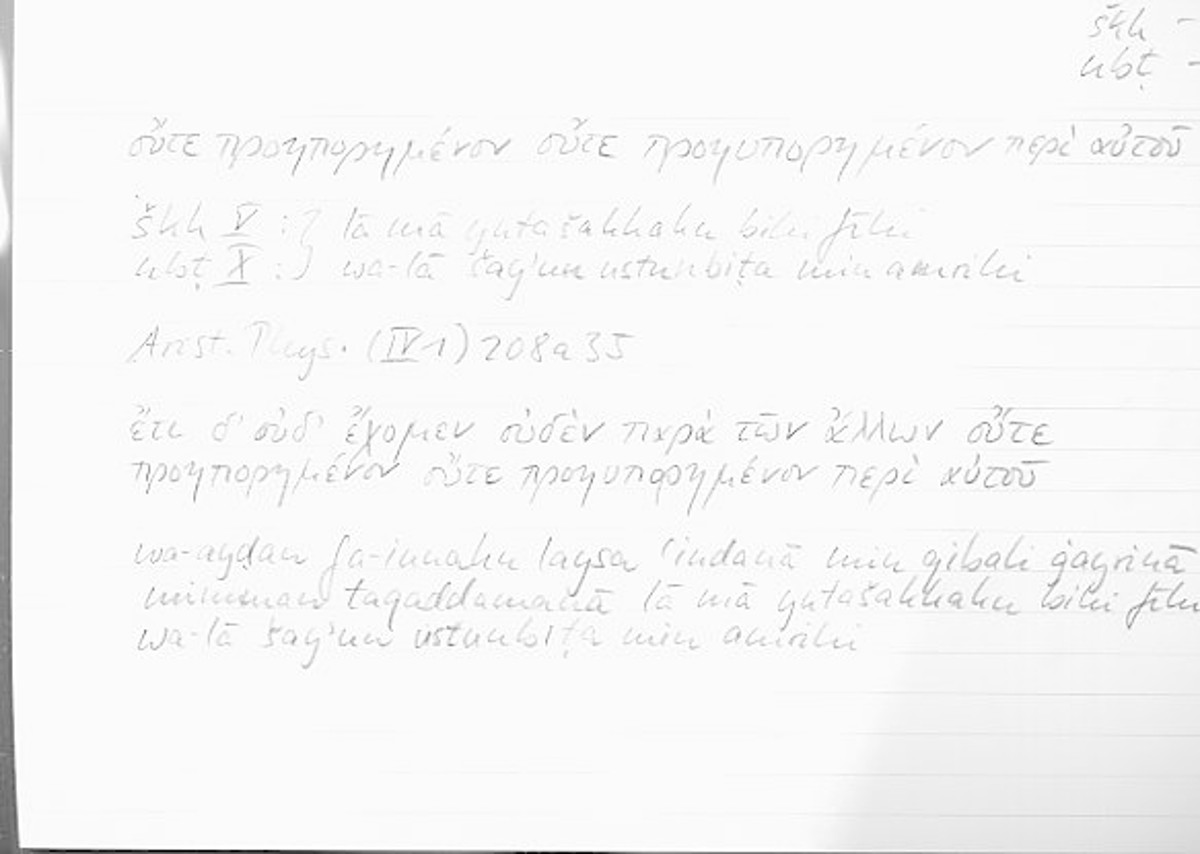 škk -
nbṭ -
οὔτε προηπορημένον οὔτε προηυπορημένον περὶ αὐτοῦ
škk V :} lā mā yutašakkaku bihi fīhi
nbṭ X :} wa-lā šayʾun ustunbiṭa min amrihi
Arist. Phys. (IV 1) 208a35
ἔτι δ' οὐδ' ἔχομεν οὐδὲν παρὰ τῶν ἄλλων οὔτε
προηπορημένον οὔτε προηυπορημένον περὶ αὐτοῦ
wa-ayḍan fa-innahu laysa ʿindanā min qibali ġayrinā
mimman taqaddamanā lā mā yutašakkaku bihi fīhi
wa-lā šayʾun ustunbiṭa min amrihi